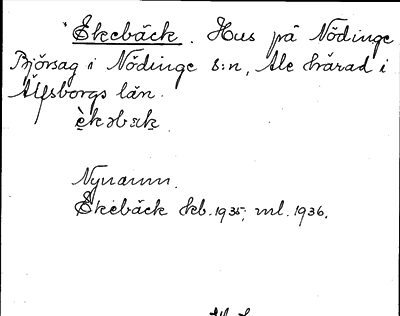 Ekebäck. Hus på Nödinge
Björsag i Nödinge s:n, Ale härad i
Älfsborgs län.
Nynamn.
Ekebäck Skb. 1935; ml. 1936.